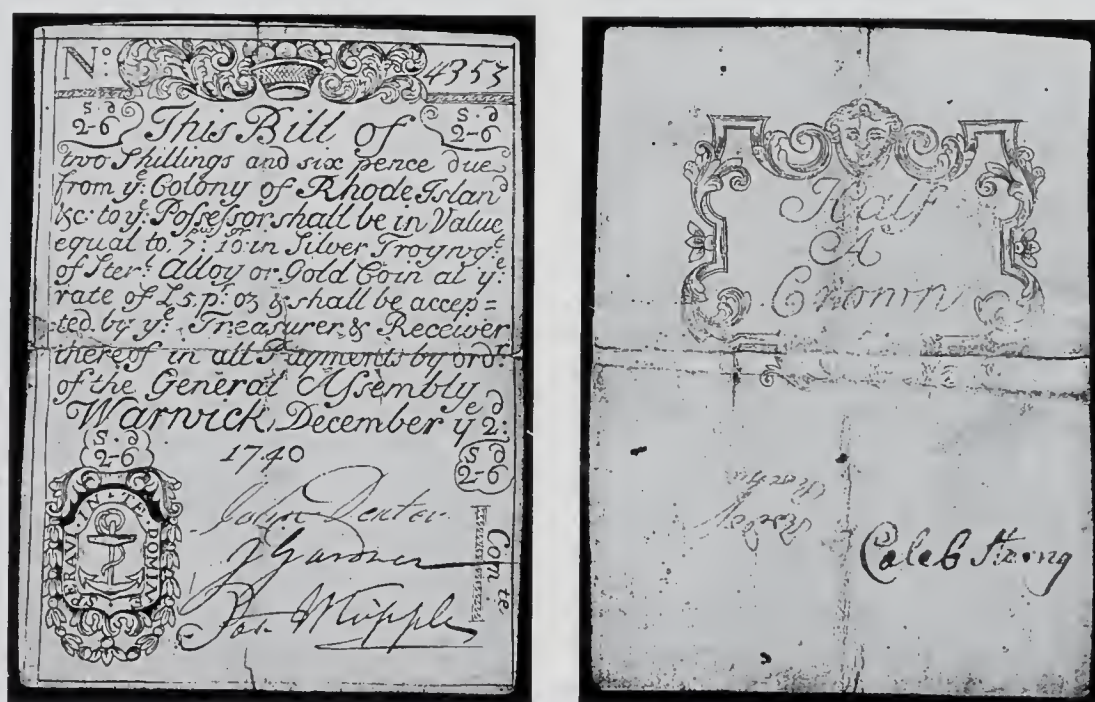 Nº 4353
s. d
2-6
s. d
2-6
This Bill of
two Shillings and six pence due
from yᵉ: Colony of Rhode Island
&c: to yᵉ: Possessor shall be in Value
equal to, 7ᵖʷ: 10: in Silver Troy wgᵗ:
of Sterˡ: Alloy or Gold Coin at yᵉ:
rate of £5 pʳ: oz & shall be accep=
ted by yᵉ Treasurer & Receiver
thereof in all Payments by ordʳ:
of the General Assembly
Warwick, December yᵉ 2ᵈ:
1740
s. d
2-6
s. d
2-6
SPERAVI · IN · TE · DOMINE
John Dexter
J Gardner
Jos. Whipple
Comᵗᵉᵉ
Half
A
Crown
Caleb Strong